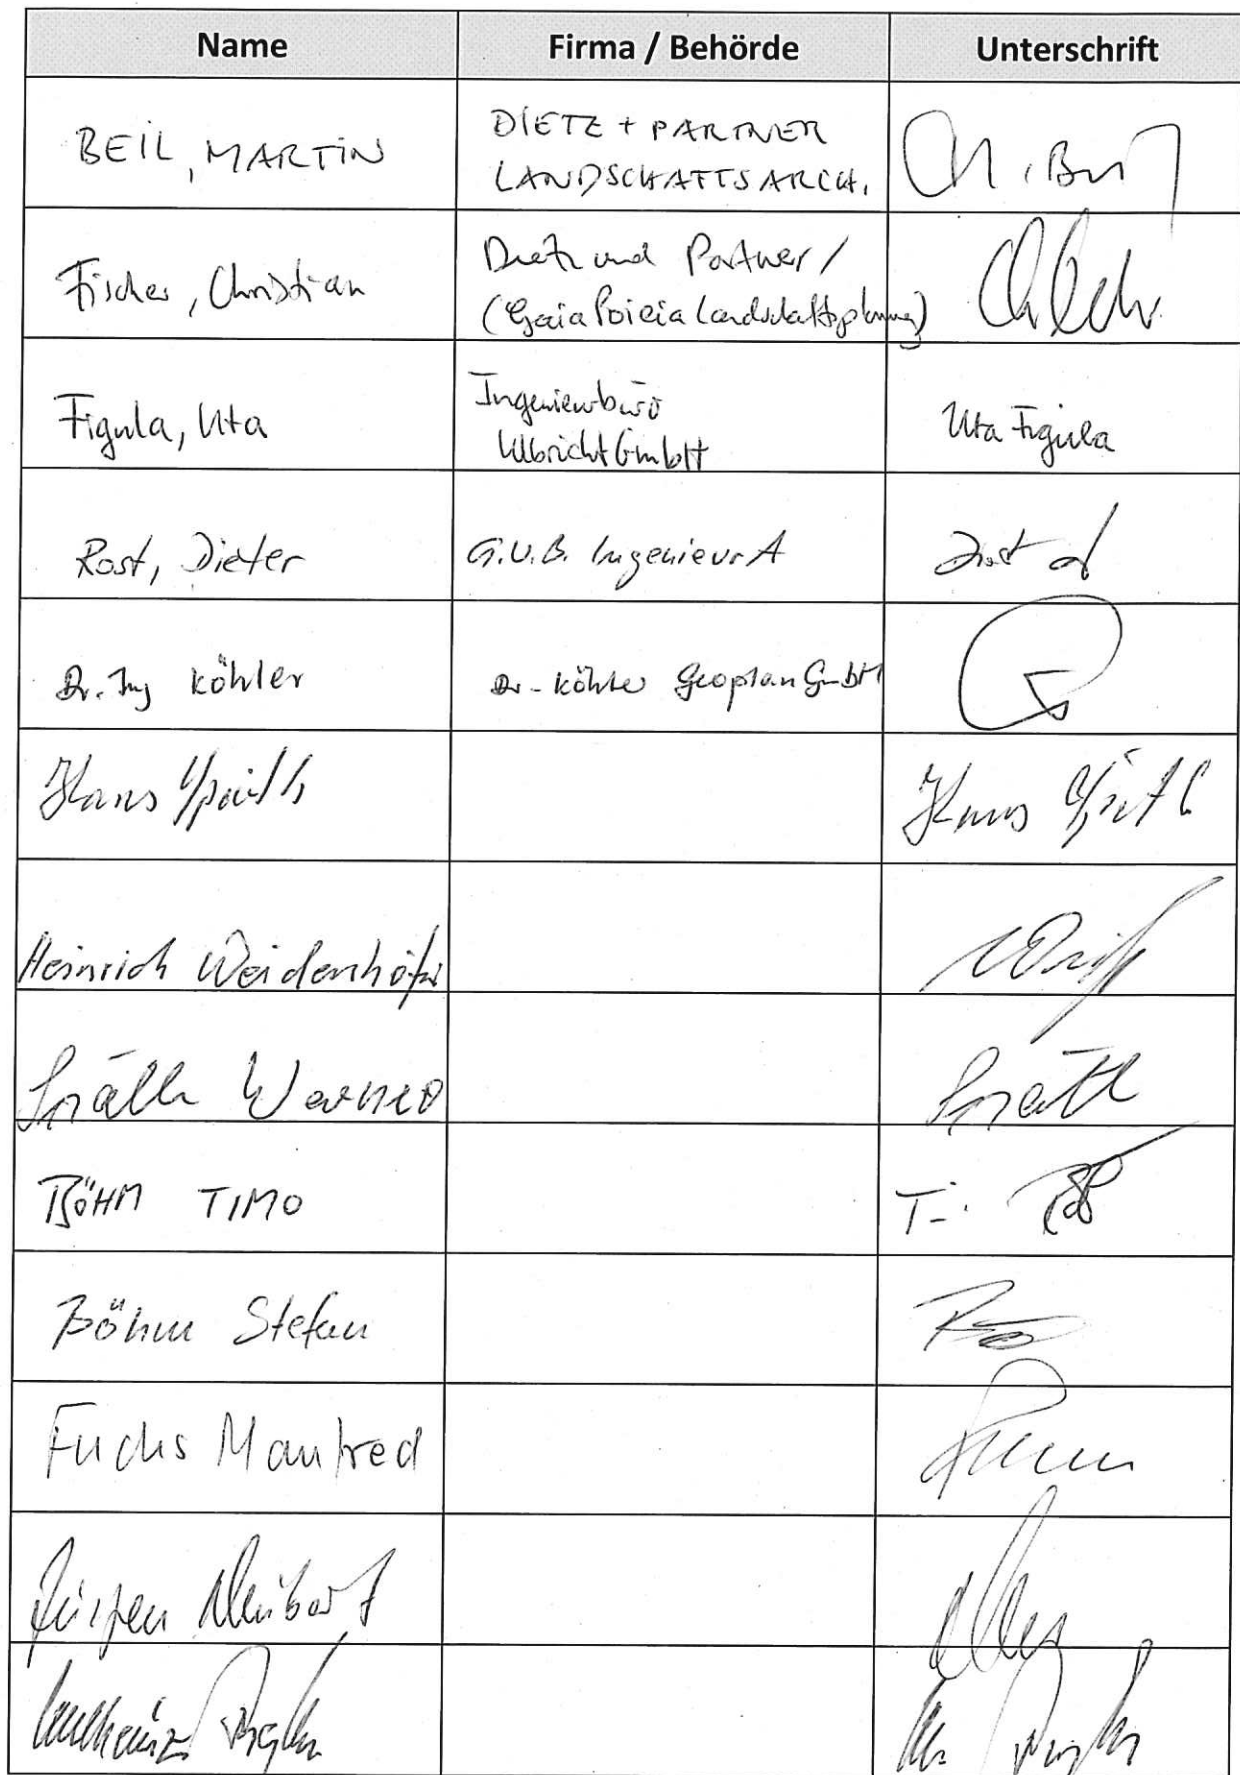 Name Firma / Behörde Unterschrift
BEIL, MARTIN
DIETZ + PARTNER
LANDSCHAFTSARCH.
Fischer, Christian
Dietz und Partner /
(Gaia Poieia Landschaftsplanung)
Figula, Uta
Ingenieurbüro
Ulbricht GmbH
Uta Figula
Rost, Dieter G.U.B. Ingenieur A
Dr. Ing Köhler Dr. Köhler Geoplan GmbH
Hans Späth Hans Späth
Heinrich Weidenhöfer
Späth Werner Späth
BÖHM TIMO
Böhm Stefan
Fuchs Manfred
Jürgen